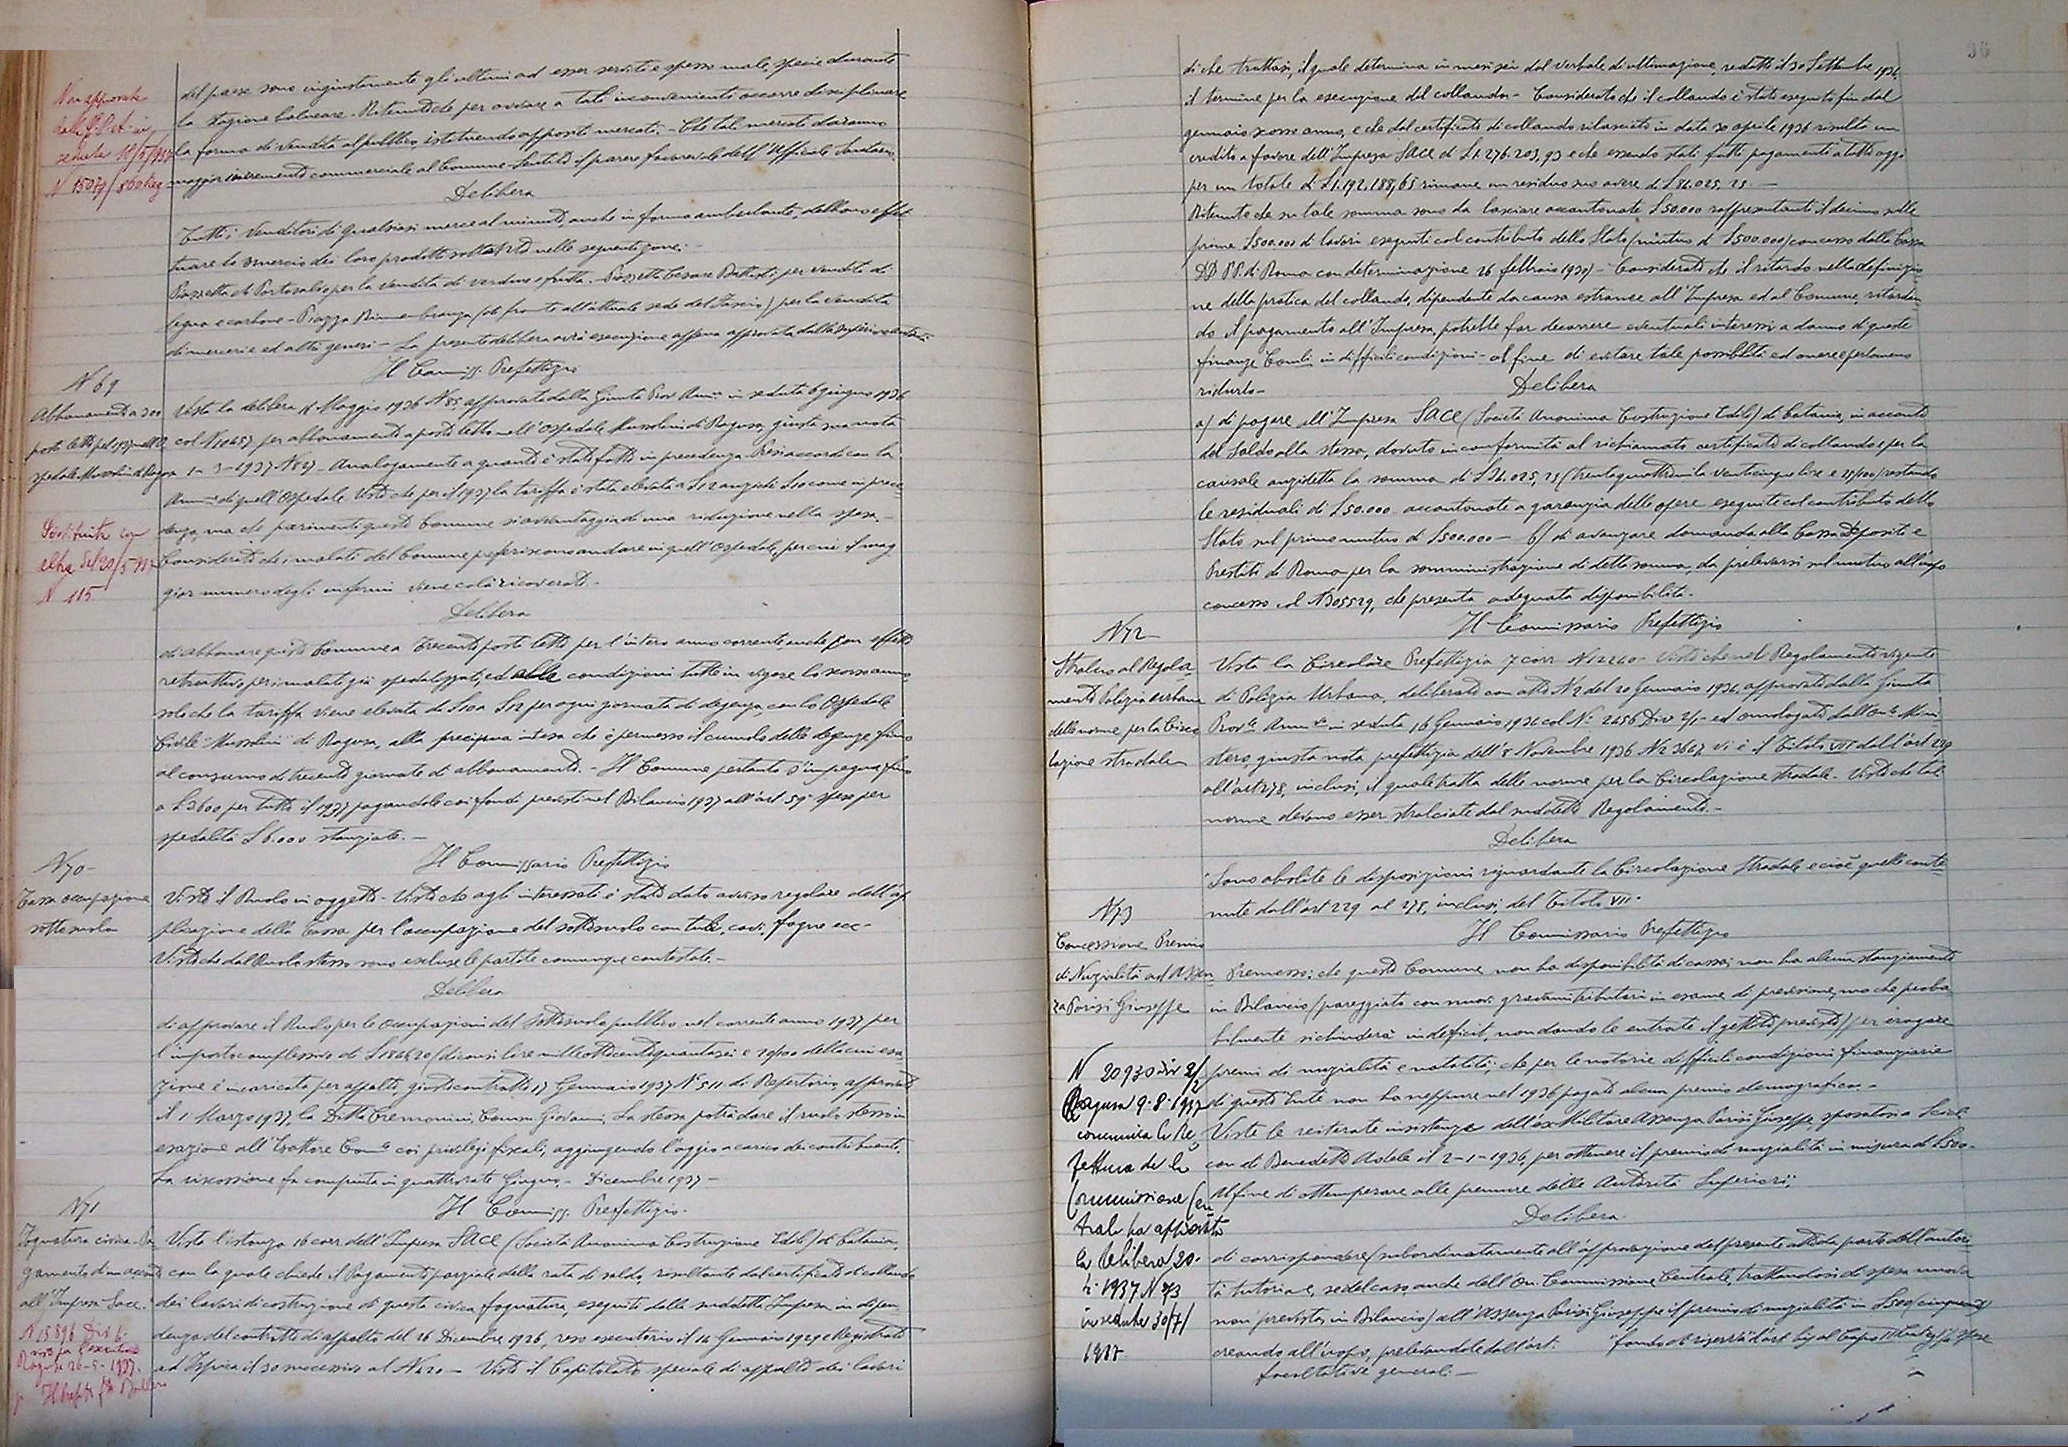 del paese sono ingiustamente gli ultimi ad esser serviti e spesso male, specie durante
la stagione balneare. Ritenuto che per ovviare a tali inconvenienti occorre disciplinare
la forma di vendita al pubblico, istituendo appositi mercati. - Che tali mercati daranno
maggior incremento commerciale al Comune Sentito il parere favorevole dell'Ufficiale Sanitario
Delibera
Tutti i venditori di qualsiasi merce al minuto, anche in forma ambulante, debbono effet-
tuare lo smercio dei loro prodotti soltanto nelle seguenti zone: -
Piazzetta di Portosalvo per la vendita di verdura e frutta. - Piazzetta Cesare Battisti per vendita di
legna e carbone - Piazza Rimembranza (di fronte all'attuale sede del Fascio) per la vendita
di mercerie ed altri generi - La presente delibera avrà esecuzione appena approvata dalla superiore autorità
Non approvata
dalla G.P.A. in
seduta 18/5/1937
N 15079/860 Rag
Il Commiss. Prefettizio
N 69
Abbonamento a 300
posti letto pel 1937 nell'O
spedale Mussolini di Ragusa
Vista la delibera 11 Maggio 1936 N 85, approvata dalla Giunta Prov Amm in seduta 6 giugno 1936
col N 10657 per abbonamenti a posti letto nell'Ospedale Mussolini di Ragusa, giusta sua nota
1-3-1937 N 27. - Analogamente a quanto è stato fatto in precedenza - Presi accordi con la
Amm di quell'Ospedale. Visto che per il 1937 la tariffa è stata elevata a L 12 anziché L 10 come in prece-
denza, ma che parimenti questo Comune si avvantaggia di una riduzione nella spesa. -
Considerato che i malati del Comune preferiscono andare in quell'Ospedale, per cui il mag
gior numero degli infermi viene colà ricoverato. -
Sostituita con
altra del 20/5 937
N 115
Delibera
di abbonare questo Comune a trecento posti letto per l'intero anno corrente anche con effetto
retroattivo, per i malati già spedalizzati, ed alle condizioni tutte in vigore lo scorso anno
solo che la tariffa viene elevata da L 10 a L 12 per ogni giornata di degenza, con lo Ospedale
Civile "Mussolini" di Ragusa, alla precipua intesa che è permesso il cumulo delle degenze fino
al consumo di trecento giornate di abbonamento. - Il Comune pertanto s'impegna fino
a L 3600 per tutto il 1937 pagandole coi fondi previsti nel Bilancio 1937 all'art 59 spese per
spedalità L 6.000 stanziate. -
Il Commissario Prefettizio
N 70 -
Tassa occupazione
sottosuolo
Visto il Ruolo in oggetto - Visto che agli interessati è stato dato avviso regolare dell'ap
plicazione della Tassa per l'occupazione del sottosuolo con tubi, cavi, fogne ecc -
Visto che dal Ruolo stesso sono escluse le partite comunque contestate. -
Delibera
di approvare il Ruolo per le occupazioni del sottosuolo pubblico nel corrente anno 1937 per
l'importo complessivo di L 1846,20 (diconsi lire milleottocentoquarantasei e 20/100 della cui esa-
zione è incaricata per appalto, giusto contratto 17 Gennaio 1937 N° 511 di Repertorio, approvato
il 1 Marzo 1937, la Ditta Cremonini, Comm Giovanni. La stessa potrà dare il ruolo stesso in
esazione all'Esattore Com coi privilegi fiscali, aggiungendo l'aggio a carico dei contribuenti.
La riscossione fa compiuta in quattro rate Giugno, - Dicembre 1937 -
Il Commiss. Prefettizio.
N 71
Fognatura civica - Pa
gamento di un acconto
all'Impresa Sace.
N 15896 Div 4
visto per l'esecutivo
Ragusa 26-5-1937.
Vista l'istanza 16 corr dell'Impresa SACE (Società Anonima Costruzione Edili) di Catania,
con la quale chiede il Pagamento parziale della rata di saldo, risultante dal certificato di collaudo
dei lavori di costruzione di questa civica fognatura, eseguiti dalla suddetta Impresa, in dipen-
denza del contratto di appalto del 26 Dicembre 1926, reso esecutorio il 14 Gennaio 1929 e Registrato
ad Ispica il 30 successivo al N 220 - Visto il Capitolato speciale di appalto dei lavori
36
di che trattasi, il quale determina in mesi sei dal verbale di ultimazione, redatto il 30 Settembre 1934
il termine per la esecuzione del collaudo - Considerato che il collaudo è stato eseguito fin dal
gennaio scorso anno, e che dal certificato di collaudo rilasciato in data 20 aprile 1936 risulta un
credito a favore dell'Impresa SACE di L 1.276.203,93 e che essendo stati fatti pagamenti a tutt'oggi
per un totale di L 1.192.188,65 rimane un residuo suo avere di L 84.025,25. -
Ritenuto che su tale somma sono da lasciare accantonate L 50.000 rappresentanti il decimo sulle
prime L 500.000 di lavori eseguiti col contributo dello Stato (mutuo di L 500.000) concesso dalla Cassa
DD PP. di Roma con determinazione 26 febbraio 1930) - Considerato che il ritardo nella definizio
ne della pratica del collaudo, dipendente da causa estranea all'Impresa ed al Comune, ritardan
do il pagamento all'Impresa, potrebbe far decorrere eventuali interessi a danno di queste
finanze Comli in difficili condizioni - al fine di evitare tale possibilità ed onere o per lo meno
ridurlo -
Delibera
a) di pagare all'Impresa SACE (Società Anonima Costruzione Edili) di Catania, in acconto
del Saldo alla stessa, dovuto in conformità al richiamato certificato di collaudo e per la
causale anzidetta la somma di L 34.025,25 (trentaquattromila venticinque lire e 25/100) restando
le residuali di L 50.000 accantonate a garanzia delle opere eseguite col contributo dello
Stato sul primo mutuo di L 500.000 - b) di avanzare domanda alla Cassa Depositi e
Prestiti di Roma per la somministrazione di detta somma, da prelevarsi sul mutuo all'uopo
concesso col N 305529, che presenta adeguata disponibilità. -
Il Commissario Prefettizio
N 72
Stralcio al Regola
mento Polizia urbana
delle norme per la Circo
lazione stradale
Vista la Circolare Prefettizia 7 corr N 12240 - Visto che nel Regolamento vigente
di Polizia Urbana, deliberato con atto N 2 del 10 Gennaio 1936, approvato dalla Giunta
Prov Amm in seduta 16 Gennaio 1936 col N° 2456 Div 2/1 - ed omologato dall'on Mini
stero, giusta nota prefettizia dell'8 Novembre 1936 N 23667, vi è il titolo VII dall'art 229
all'art 278, inclusi, il quale tratta delle norme per la Circolazione stradale - Visto che tali
norme devono esser stralciate dal suddetto Regolamento. -
Delibera
Sono abolite le disposizioni riguardante la Circolazione Stradale e cioè quelle conte-
nute dall'art 229 al 278, inclusi, del Titolo VII.
Il Commissario Prefettizio
N 73
Concessione Premio
di Nuzialità ad Assen
za Parisi Giuseppe
Premesso: che questo Comune non ha disponibilità di cassa; non ha alcun stanziamento
in Bilancio (pareggiato con nuovi gravami tributari in esame di previsione, ma che proba
bilmente richiuderà in deficit, non dando le entrate il gettito previsto) per erogare
premi di nuzialità e natalità; che per le notorie difficili condizioni finanziarie
di questo Ente non ha neppure nel 1936 pagato alcun premio demografico. -
Viste le reiterate insistenze dell'ex Militare Assenza Parisi Giuseppe, sposatosi a Scicli
con Di Benedetto Adele il 2-1-1936, per ottenere il premio di nuzialità in misura di L 500 -
Al fine di ottemperare alle premure delle Autorità Superiori;
Delibera
di corrispondere (subordinatamente all'approvazione del presente atto da parte dell'autori-
tà tutoria e, se del caso, anche dell'On. Commissione Centrale, trattandosi di spesa nuova
non prevista in Bilancio) all'Assenza Parisi Giuseppe il premio di nuzialità in L 500 (cinquecento)
creando all'uopo, prelevandole dall'art. "fondo di riserva" l'art
facoltative generali -
N 20930 Div 2/2
Ragusa 9-8-1937
comunica la Pre
fettura che la
Commissione Cen
trale ha approvato
la delibera 20-
4-1937 N 73
in seduta 30/7/
1937